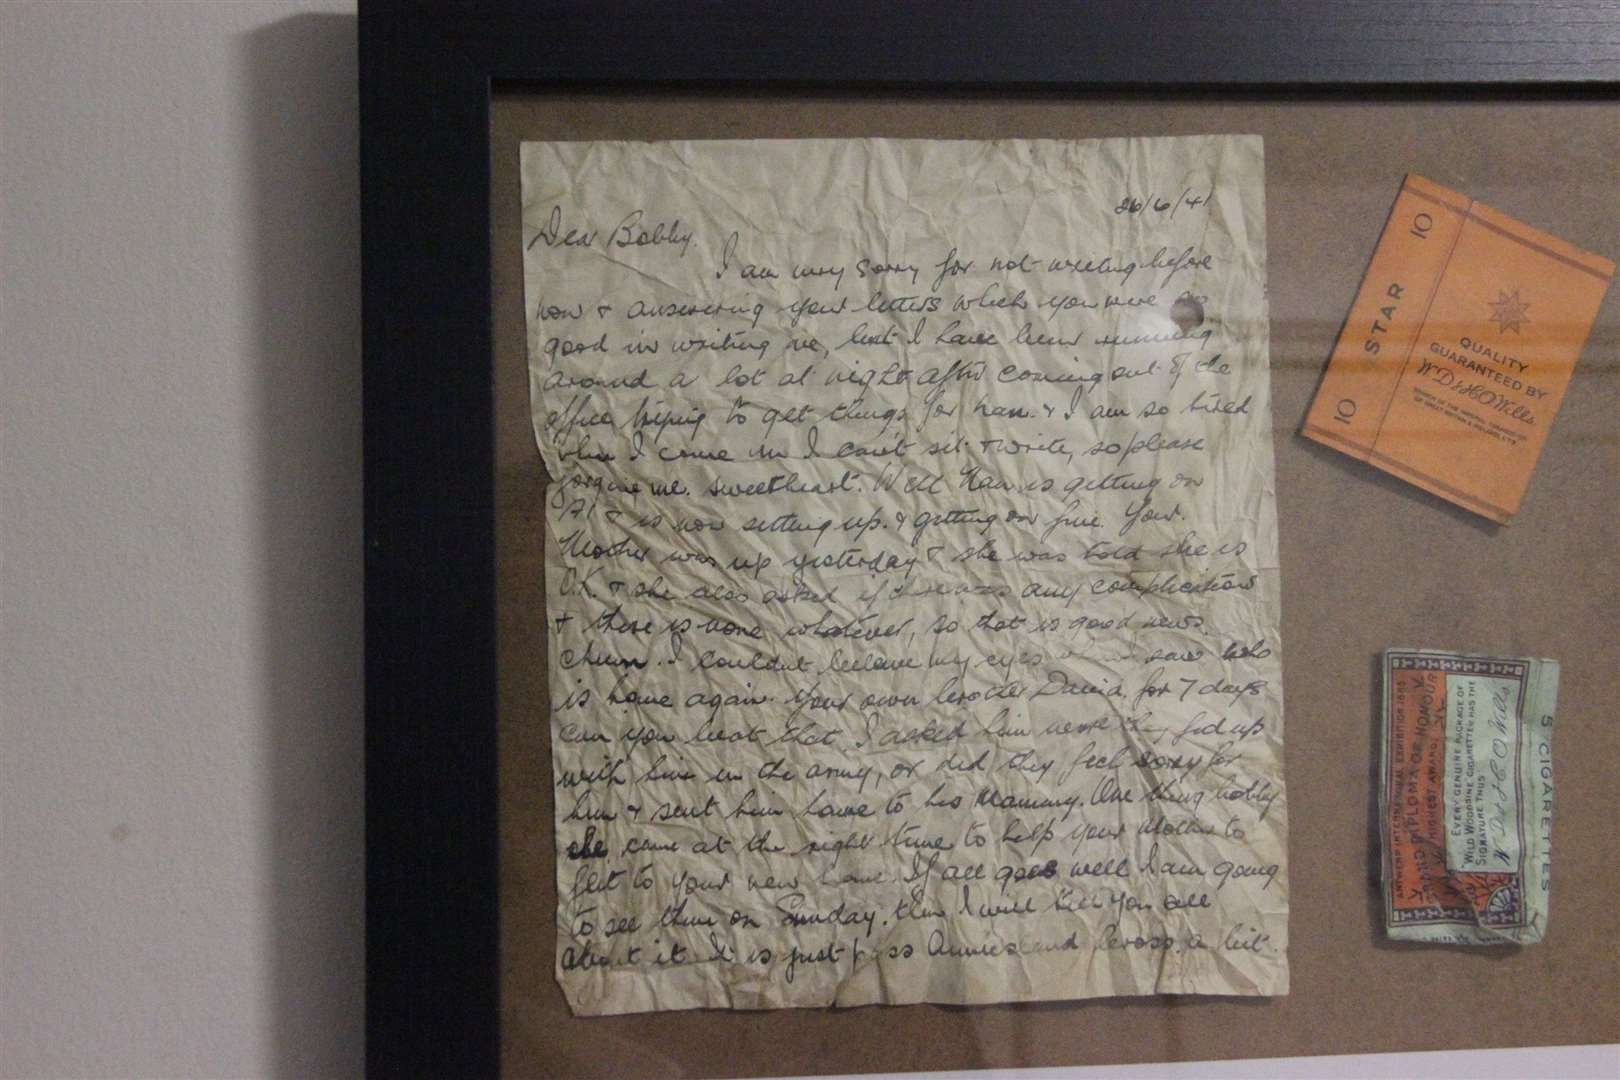 26/6/41
Dear Bobby.
I am very sorry for not writing before
now & answering your letters which you were so
good in writing me, but I have been running
around a lot at night after coming out of the
office trying to get things for Nan. & I am so tired
when I come in I can't sit & write, so please
forgive me. sweetheart. Well Nan is getting on
A1 & is now sitting up. & getting on fine. Your.
Mother was up yesterday & she was told she is
O.K. & she also asked if there was any complications
& there is none whatever, so that is good news.
chum. I couldn't believe my eyes when I saw who
is home again. Your own brother David. for 7 days
can you beat that. I asked him were they fed up
with him in the army, or did they feel sorry for
him & sent him home to his Mammy. One thing bobby
he came at the right time to help your Mother to
flit to your new home. If all goes well I am going
to see them on Sunday. then I will tell you all
about it. It is just pass Anniesland Cross. a bit.
10
STAR
10
QUALITY
GUARANTEED BY
W.D. & H.O. Wills
BRANCH OF THE IMPERIAL TOBACCO CO.
OF GREAT BRITAIN & IRELAND, LTD
ANTWERP INTERNATIONAL EXHIBITION 1885
GRAND DIPLOMA OF HONOUR
HIGHEST AWARD
EVERY GENUINE PACKAGE OF
WILD WOODBINE CIGARETTES HAS THE
SIGNATURE THUS
W.D. & H.O. Wills
5 CIGARETTES